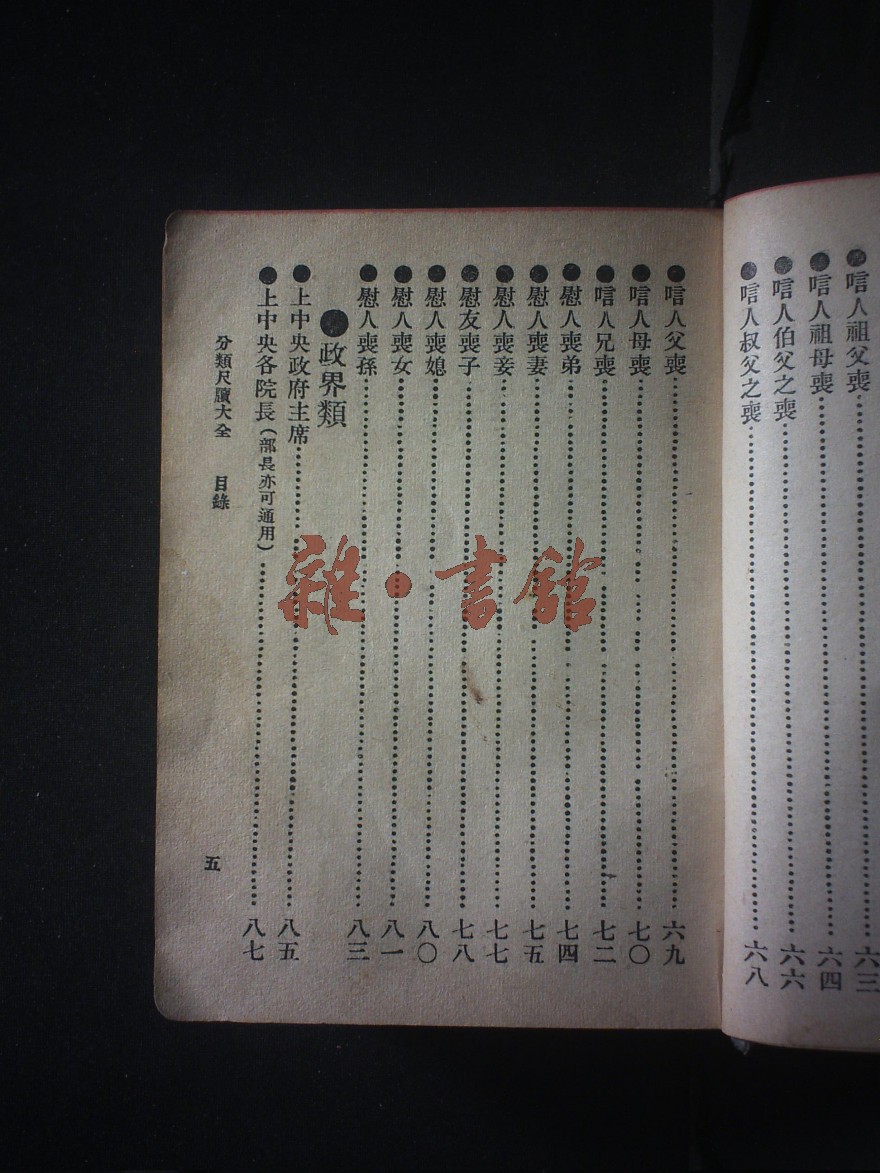 ●唁人祖父喪……六三
●唁人祖母喪……六四
●唁人伯父之喪……六六
●唁人叔父之喪……六八
●唁人父喪……六九
●唁人母喪……七〇
●唁人兄喪……七二
●慰人喪弟……七四
●慰人喪妻……七五
●慰人喪妾……七七
●慰友喪子……七八
●慰人喪媳……八〇
●慰人喪女……八一
●慰人喪孫……八三
●政界類
●上中央政府主席……八五
●上中央各院長（部長亦可通用）……八七
分類尺牘大全 目錄 五
雜·書館